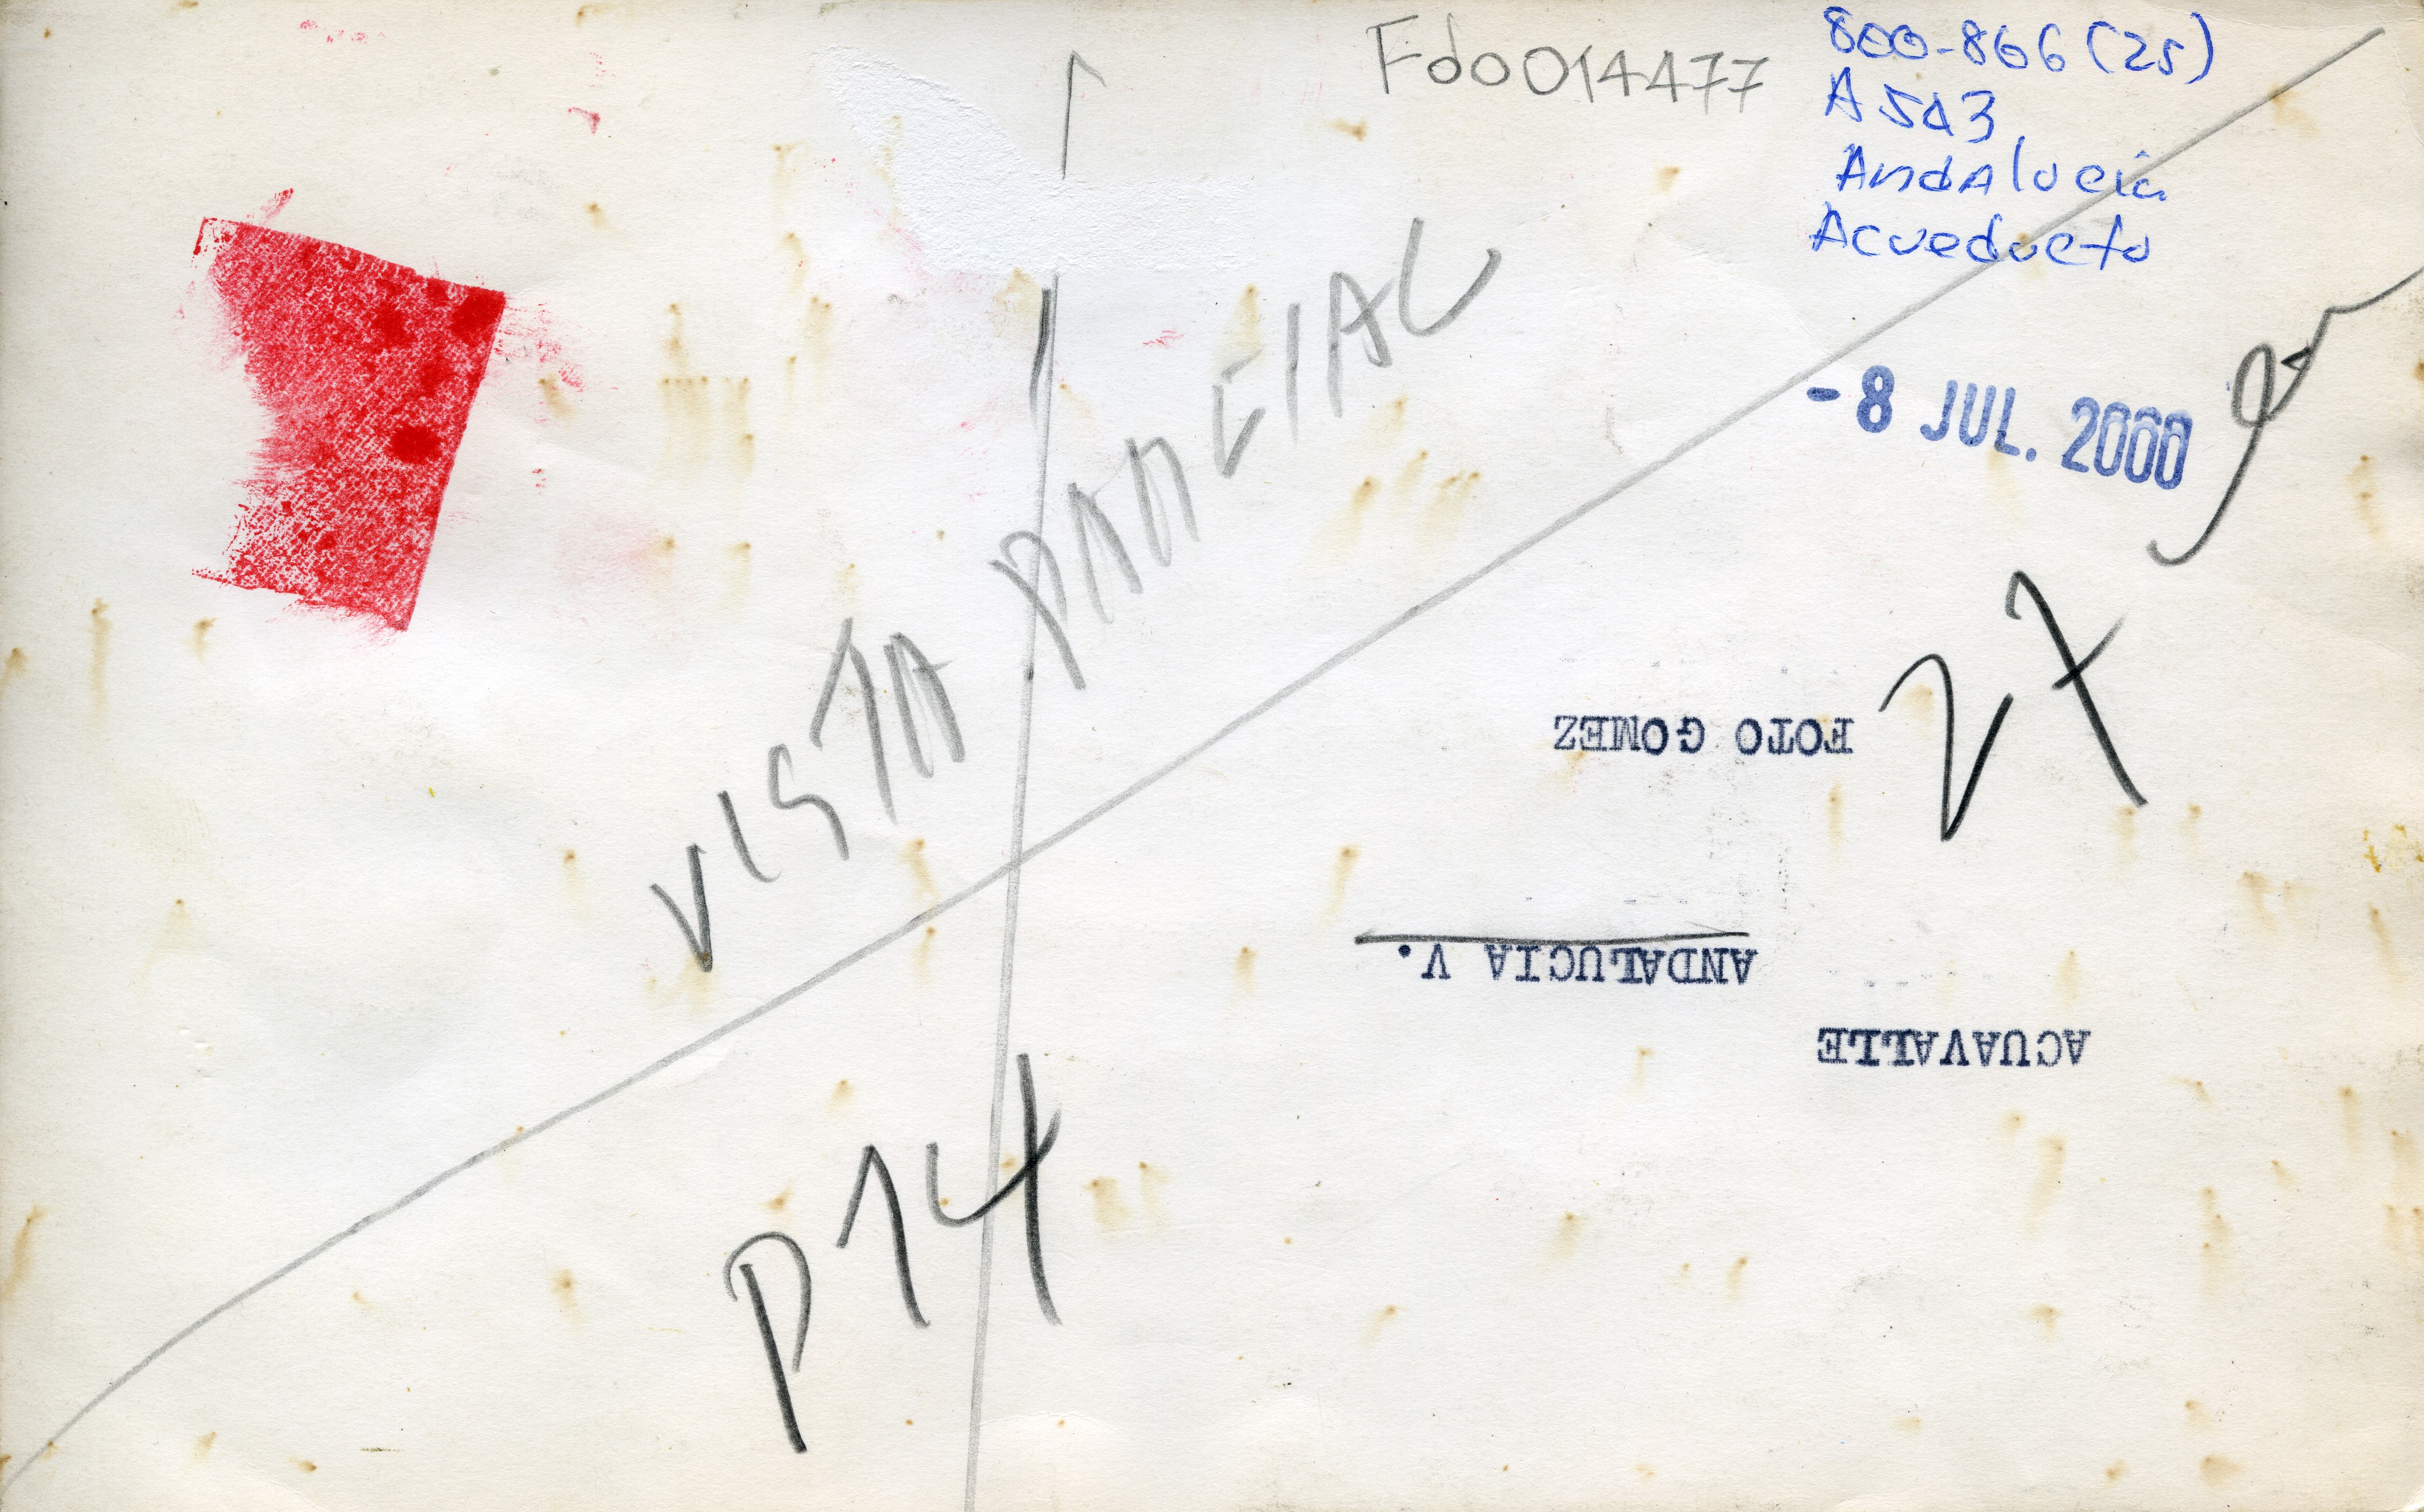 Fdo0014477
800-866(25)
A5A3
Andalucia
Acueducto
-8 JUL. 2000
VISTA PARCIAL
27
FOTO GOMEZ
ANDALUCIA V.
ACUAVALLE
P14